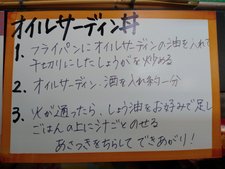 オイルサーディン丼
1. フライパンにオイルサーディンの油を入れて
千切りにしたしょうがを炒める
2. オイルサーディン・酒を入れ約一分
3. 火が通ったら、しょう油をお好みで足し
ごはんの上に汁ごとのせる
あさつきをちらして できあがり!